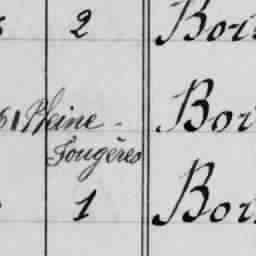 2 Bor
Pleine-
Fougères Bor
1 Bor